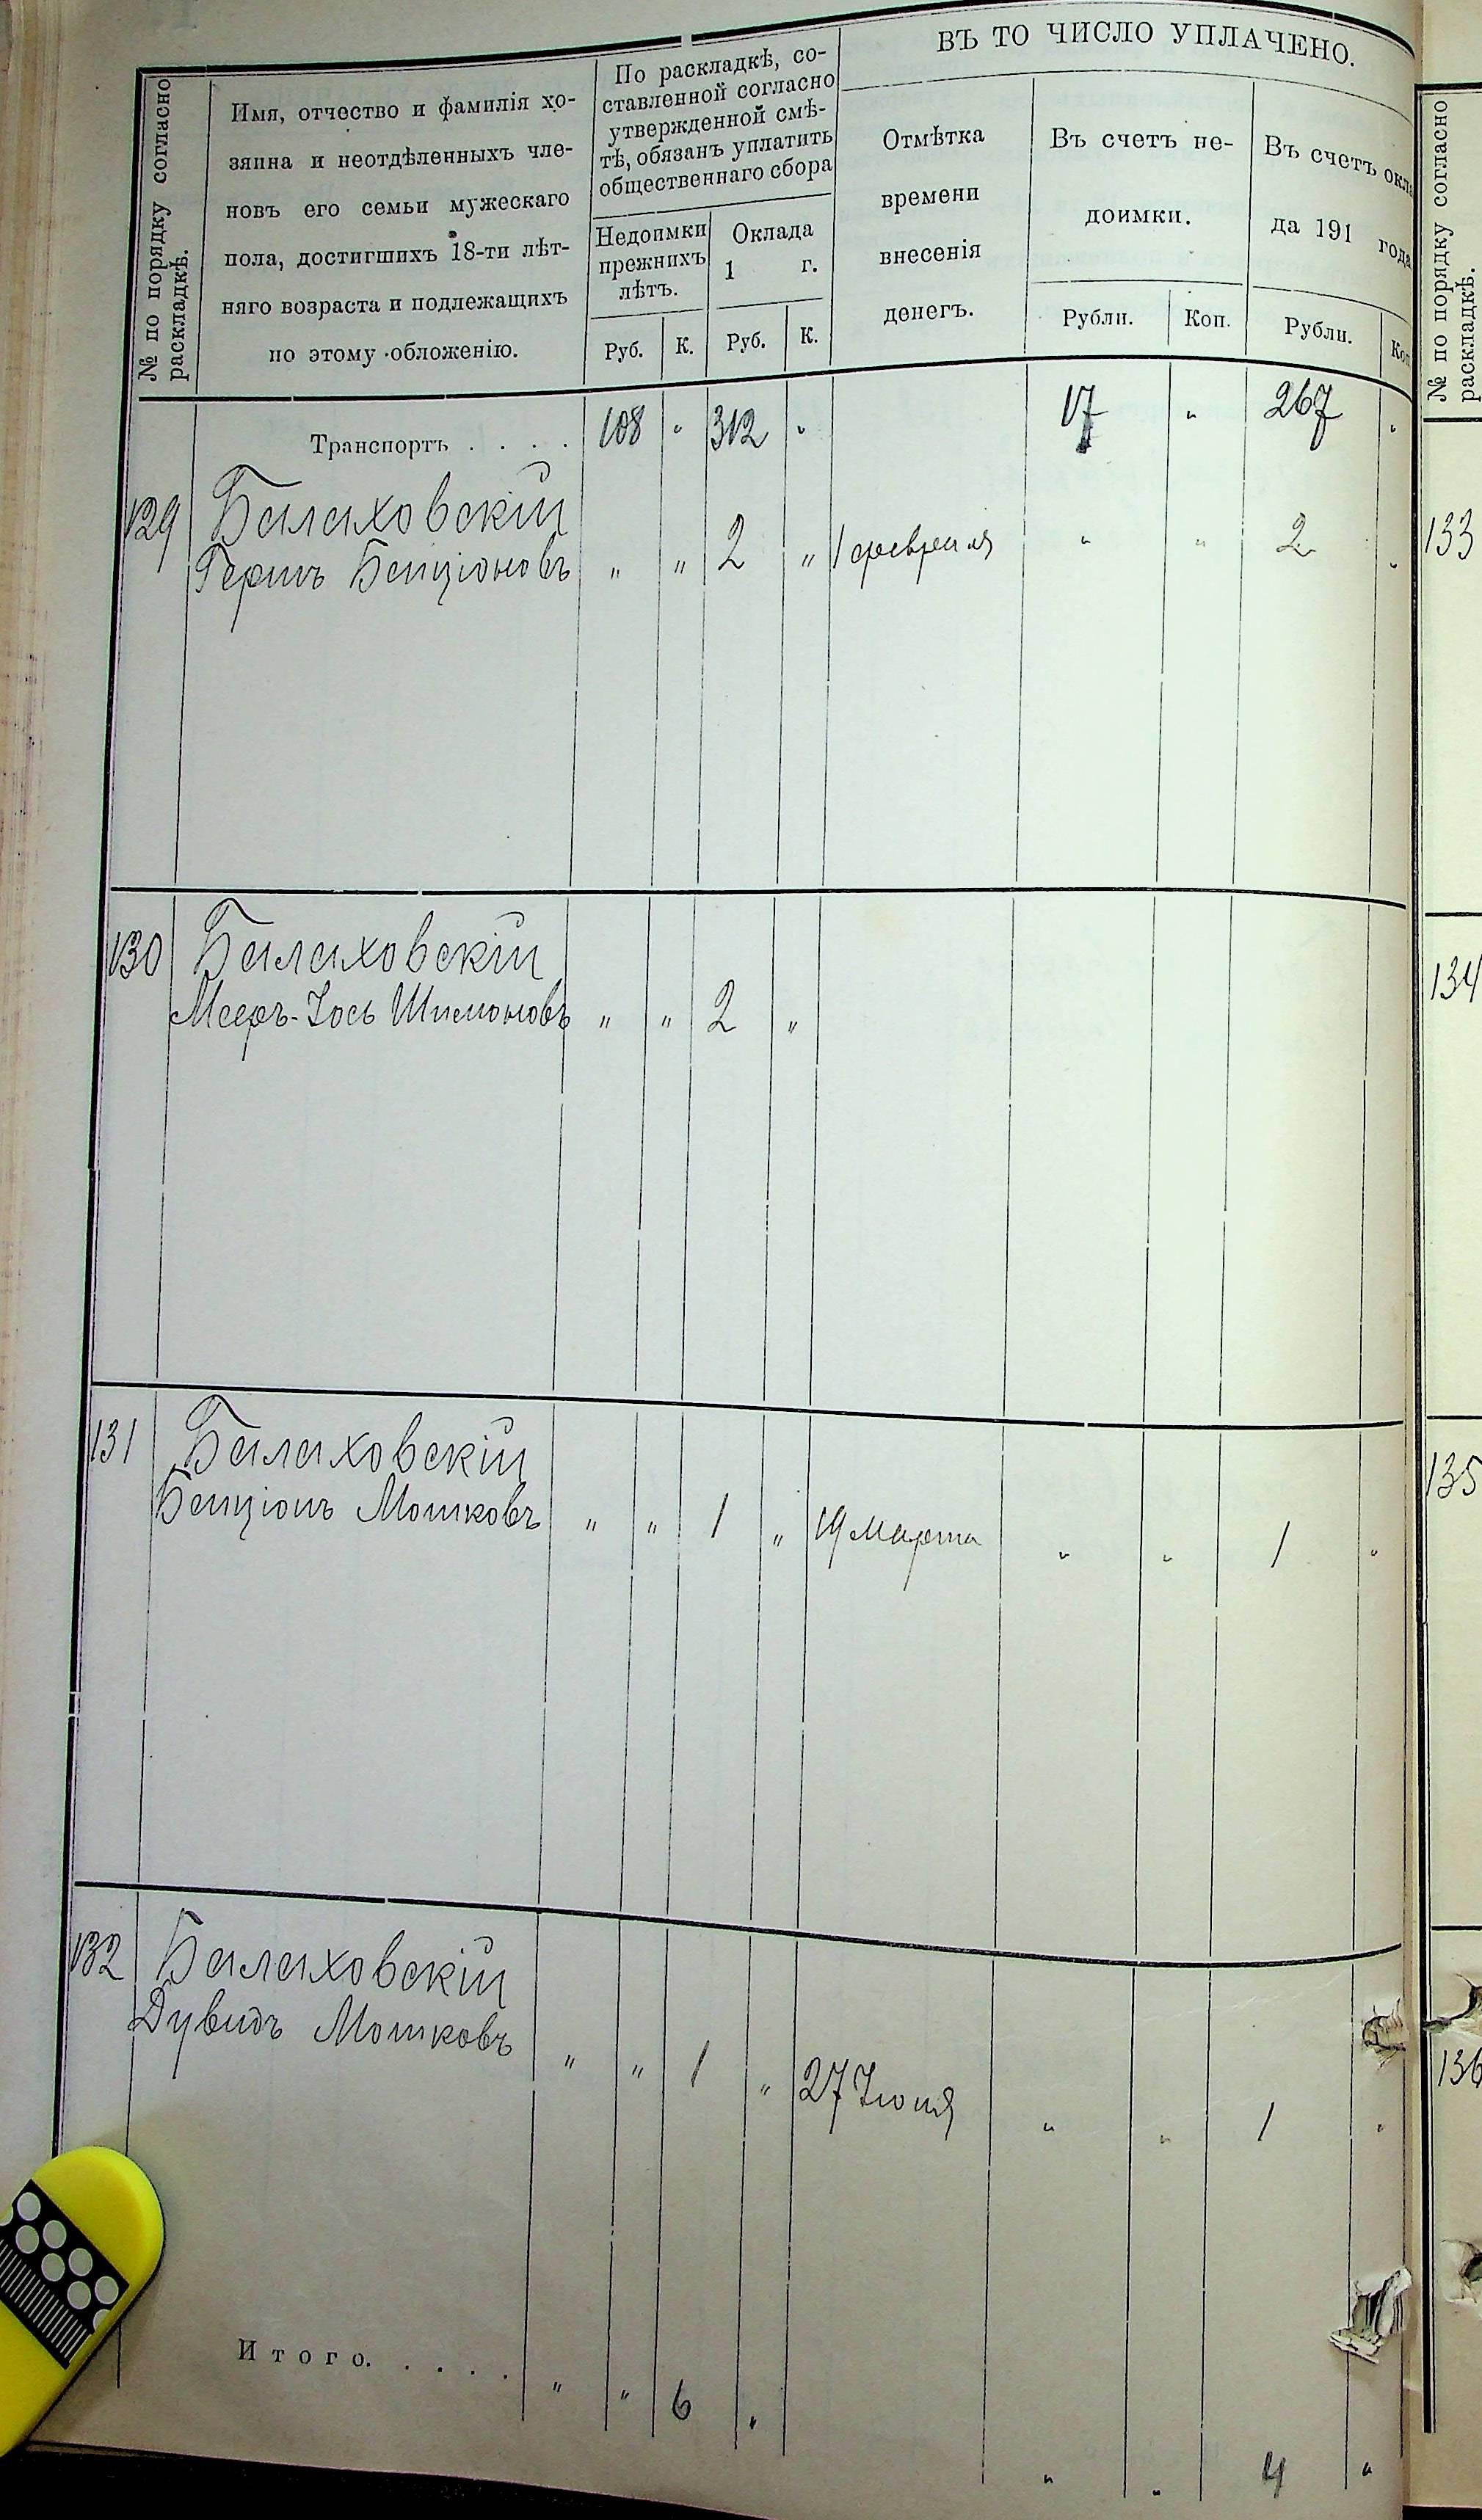 № по порядку согласно
раскладкѣ.
Имя, отчество и фамилія хо-
зяина и неотдѣленныхъ чле-
новъ его семьи мужескаго
пола, достигшихъ 18-ти лѣт-
няго возраста и подлежащихъ
по этому обложенію.
По раскладкѣ, со-
ставленной согласно
утвержденной смѣ-
тѣ, обязанъ уплатить
общественнаго сбора
Недоимки
прежнихъ
лѣтъ.
Оклада
1 г.
Руб. К. Руб. К.
ВЪ ТО ЧИСЛО УПЛАЧЕНО.
Отмѣтка
времени
внесенія
денегъ.
Въ счетъ не-
доимки.
Рубли. Коп.
Въ счетъ окла
да 191 года
Рубли. Коп
Транспортъ . . . . 108 " 312 " 17 " 267 "
129 Балаховскій
Гершъ Бенціоновъ " " 2 " 1 февраля " " 2 "
130 Балаховскій
Мееръ-Іось Шимоновъ " " 2 "
131 Балаховскій
Бенціонъ Мошковъ " " 1 " 19 Марта " " 1 "
132 Балаховскій
Дувидъ Мошковъ " " 1 " 27 Іюня " " 1 "
Итого. . . . . " " 6 " " " 4 "
№ по порядку согласно
раскладкѣ.
133
134
135
136